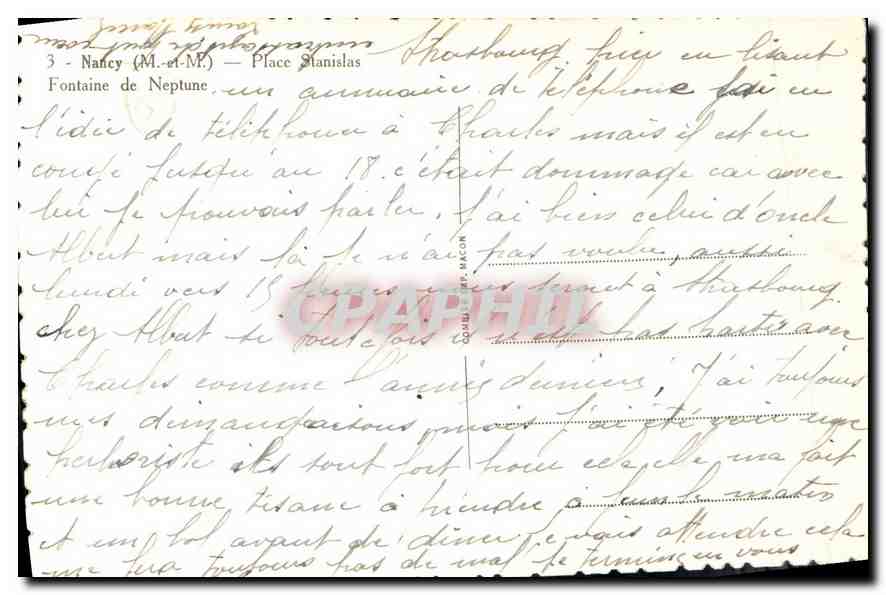 3 - Nancy (M.-et-M.) — Place Stanislas
Fontaine de Neptune
Strasbourg, hier en lisant
un annuaire de téléphone j'ai eu
l'idée de téléphoner à Charles mais il est en
congé jusqu'au 18. c'était dommage car avec
lui je pouvais parler. J'ai bien celui d'oncle
Albert mais là je n'ai pas voulu, aussi
lundi vers 15 heures nous serons à Strasbourg
chez Albert si toutefois il n'est pas parti avec
Charles comme l'année dernière, J'ai toujours
mes démangeaisons, mais j'ai été voir une
herboriste ils sont fort pour cela elle m'a fait
une bonne tisane à prendre à jeun le matin
et un bol avant de dîner, je vais attendre cela
me fera toujours pas de mal je termine en vous
COMBIER IMP. MACON
CPAPHIL